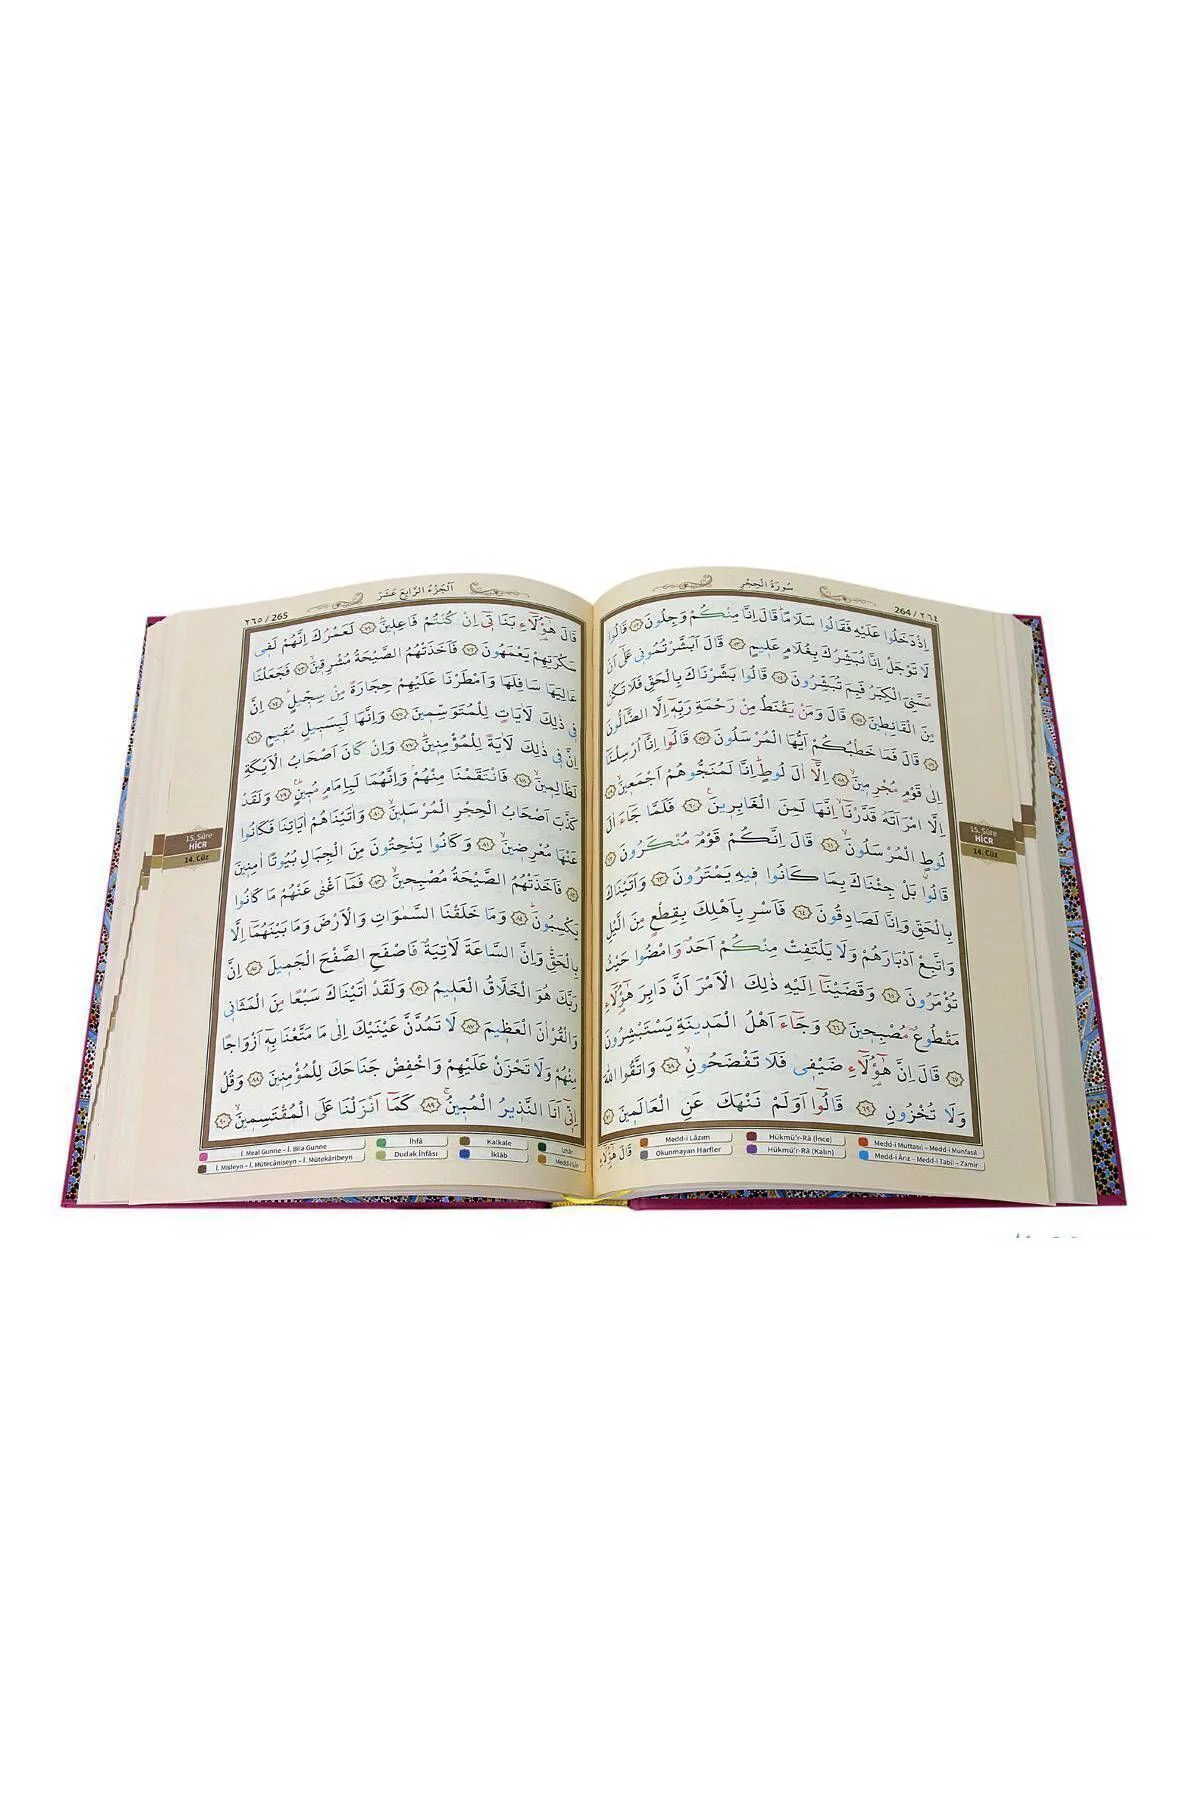 264 / ٢٦٤
سُورَةُ الْحِجْرِ
اِذْ دَخَلُوا عَلَيْهِ فَقَالُوا سَلَامًاۜ قَالَ اِنَّا مِنْكُمْ وَجِلُونَ ﴿٥٢﴾ قَالُوا
لَا تَوْجَلْ اِنَّا نُبَشِّرُكَ بِغُلَامٍ عَلٖيمٍ ﴿٥٣﴾ قَالَ اَبَشَّرْتُمُونٖى عَلٰٓى اَنْ
مَسَّنِىَ الْكِبَرُ فَبِمَ تُبَشِّرُونَ ﴿٥٤﴾ قَالُوا بَشَّرْنَاكَ بِالْحَقِّ فَلَا تَكُنْ
مِنَ الْقَانِطٖينَ ﴿٥٥﴾ قَالَ وَمَنْ يَقْنَطُ مِنْ رَحْمَةِ رَبِّهٖٓ اِلَّا الضَّٓالُّونَ
﴿٥٦﴾ قَالَ فَمَا خَطْبُكُمْ اَيُّهَا الْمُرْسَلُونَ ﴿٥٧﴾ قَالُٓوا اِنَّٓا اُرْسِلْنَٓا
اِلٰى قَوْمٍ مُجْرِمٖينَۙ ﴿٥٨﴾ اِلَّٓا اٰلَ لُوطٍۜ اِنَّا لَمُنَجُّوهُمْ اَجْمَعٖينَۙ ﴿٥٩﴾
اِلَّا امْرَاَتَهُ قَدَّرْنَٓاۙ اِنَّهَا لَمِنَ الْغَابِرٖينَ ﴿٦٠﴾ فَلَمَّا جَٓاءَ اٰلَ
لُوطٍ الْمُرْسَلُونَۙ ﴿٦١﴾ قَالَ اِنَّكُمْ قَوْمٌ مُنْكَرُونَ ﴿٦٢﴾
قَالُوا بَلْ جِئْنَاكَ بِمَا كَانُوا فٖيهِ يَمْتَرُونَ ﴿٦٣﴾ وَاَتَيْنَاكَ
بِالْحَقِّ وَاِنَّا لَصَادِقُونَ ﴿٦٤﴾ فَاَسْرِ بِاَهْلِكَ بِقِطْعٍ مِنَ الَّيْلِ
وَاتَّبِعْ اَدْبَارَهُمْ وَلَا يَلْتَفِتْ مِنْكُمْ اَحَدٌ وَامْضُوا حَيْثُ
تُؤْمَرُونَ ﴿٦٥﴾ وَقَضَيْنَٓا اِلَيْهِ ذٰلِكَ الْاَمْرَ اَنَّ دَابِرَ هٰٓؤُ۬لَٓاءِ
مَقْطُوعٌ مُصْبِحٖينَ ﴿٦٦﴾ وَجَٓاءَ اَهْلُ الْمَدٖينَةِ يَسْتَبْشِرُونَ
﴿٦٧﴾ قَالَ اِنَّ هٰٓؤُ۬لَٓاءِ ضَيْفٖى فَلَا تَفْضَحُونِۙ ﴿٦٨﴾ وَاتَّقُوا اللّٰهَ
وَلَا تُخْزُونِ ﴿٦٩﴾ قَالُٓوا اَوَلَمْ نَنْهَكَ عَنِ الْعَالَمٖينَ ﴿٧٠﴾
قَالَ هٰٓؤُ۬لَٓاءِ
Medd-i Lâzım
Hükmü'r-Râ (İnce)
Medd-i Muttasıl – Medd-i Munfasıl
Okunmayan Harfler
Hükmü'r-Râ (Kalın)
Medd-i Ârız – Medd-i Tabii – Zamir
15. Sûre
HİCR
14. Cüz
٢٦٥ / 265
اَلْجُزْءُ الرَّابِعَ عَشَرَ
قَالَ هٰٓؤُ۬لَٓاءِ بَنَاتٖٓى اِنْ كُنْتُمْ فَاعِلٖينَۜ ﴿٧١﴾ لَعَمْرُكَ اِنَّهُمْ لَفٖى
سَكْرَتِهِمْ يَعْمَهُونَ ﴿٧٢﴾ فَاَخَذَتْهُمُ الصَّيْحَةُ مُشْرِقٖينَۙ ﴿٧٣﴾ فَجَعَلْنَا
عَالِيَهَا سَافِلَهَا وَاَمْطَرْنَا عَلَيْهِمْ حِجَارَةً مِنْ سِجّٖيلٍۜ ﴿٧٤﴾ اِنَّ
فٖى ذٰلِكَ لَاٰيَاتٍ لِلْمُتَوَسِّمٖينَ ﴿٧٥﴾ وَاِنَّهَا لَبِسَبٖيلٍ مُقٖيمٍ ﴿٧٦﴾
اِنَّ فٖى ذٰلِكَ لَاٰيَةً لِلْمُؤْمِنٖينَۜ ﴿٧٧﴾ وَاِنْ كَانَ اَصْحَابُ الْاَيْكَةِ
لَظَالِمٖينَۙ ﴿٧٨﴾ فَانْتَقَمْنَا مِنْهُمْۢ وَاِنَّهُمَا لَبِاِمَامٍ مُبٖينٍۜ ﴿٧٩﴾ وَلَقَدْ
كَذَّبَ اَصْحَابُ الْحِجْرِ الْمُرْسَلٖينَۙ ﴿٨٠﴾ وَاٰتَيْنَاهُمْ اٰيَاتِنَا فَكَانُوا
عَنْهَا مُعْرِضٖينَۙ ﴿٨١﴾ وَكَانُوا يَنْحِتُونَ مِنَ الْجِبَالِ بُيُوتًا اٰمِنٖينَ
﴿٨٢﴾ فَاَخَذَتْهُمُ الصَّيْحَةُ مُصْبِحٖينَۙ ﴿٨٣﴾ فَمَٓا اَغْنٰى عَنْهُمْ مَا كَانُوا
يَكْسِبُونَۜ ﴿٨٤﴾ وَمَا خَلَقْنَا السَّمٰوَاتِ وَالْاَرْضَ وَمَا بَيْنَهُمَٓا اِلَّا
بِالْحَقِّۜ وَاِنَّ السَّاعَةَ لَاٰتِيَةٌ فَاصْفَحِ الصَّفْحَ الْجَمٖيلَ ﴿٨٥﴾ اِنَّ
رَبَّكَ هُوَ الْخَلَّاقُ الْعَلٖيمُ ﴿٨٦﴾ وَلَقَدْ اٰتَيْنَاكَ سَبْعًا مِنَ الْمَثَانٖى
وَالْقُرْاٰنَ الْعَظٖيمَ ﴿٨٧﴾ لَا تَمُدَّنَّ عَيْنَيْكَ اِلٰى مَا مَتَّعْنَا بِهٖٓ اَزْوَاجًا
مِنْهُمْ وَلَا تَحْزَنْ عَلَيْهِمْ وَاخْفِضْ جَنَاحَكَ لِلْمُؤْمِنٖينَ ﴿٨٨﴾ وَقُلْ
اِنّٖٓى اَنَا النَّذٖيرُ الْمُبٖينُۚ ﴿٨٩﴾ كَمَٓا اَنْزَلْنَا عَلَى الْمُقْتَسِمٖينَۙ ﴿٩٠﴾
İ. Meal Gunne – İ. Bila Gunne
İhfâ
Kalkale
İzhâr
İ. Misleyn – İ. Mütecâniseyn – İ. Mütekâribeyn
Dudak İhfâsı
İklâb
Medd-i Lîn
15. Sûre
HİCR
14. Cüz